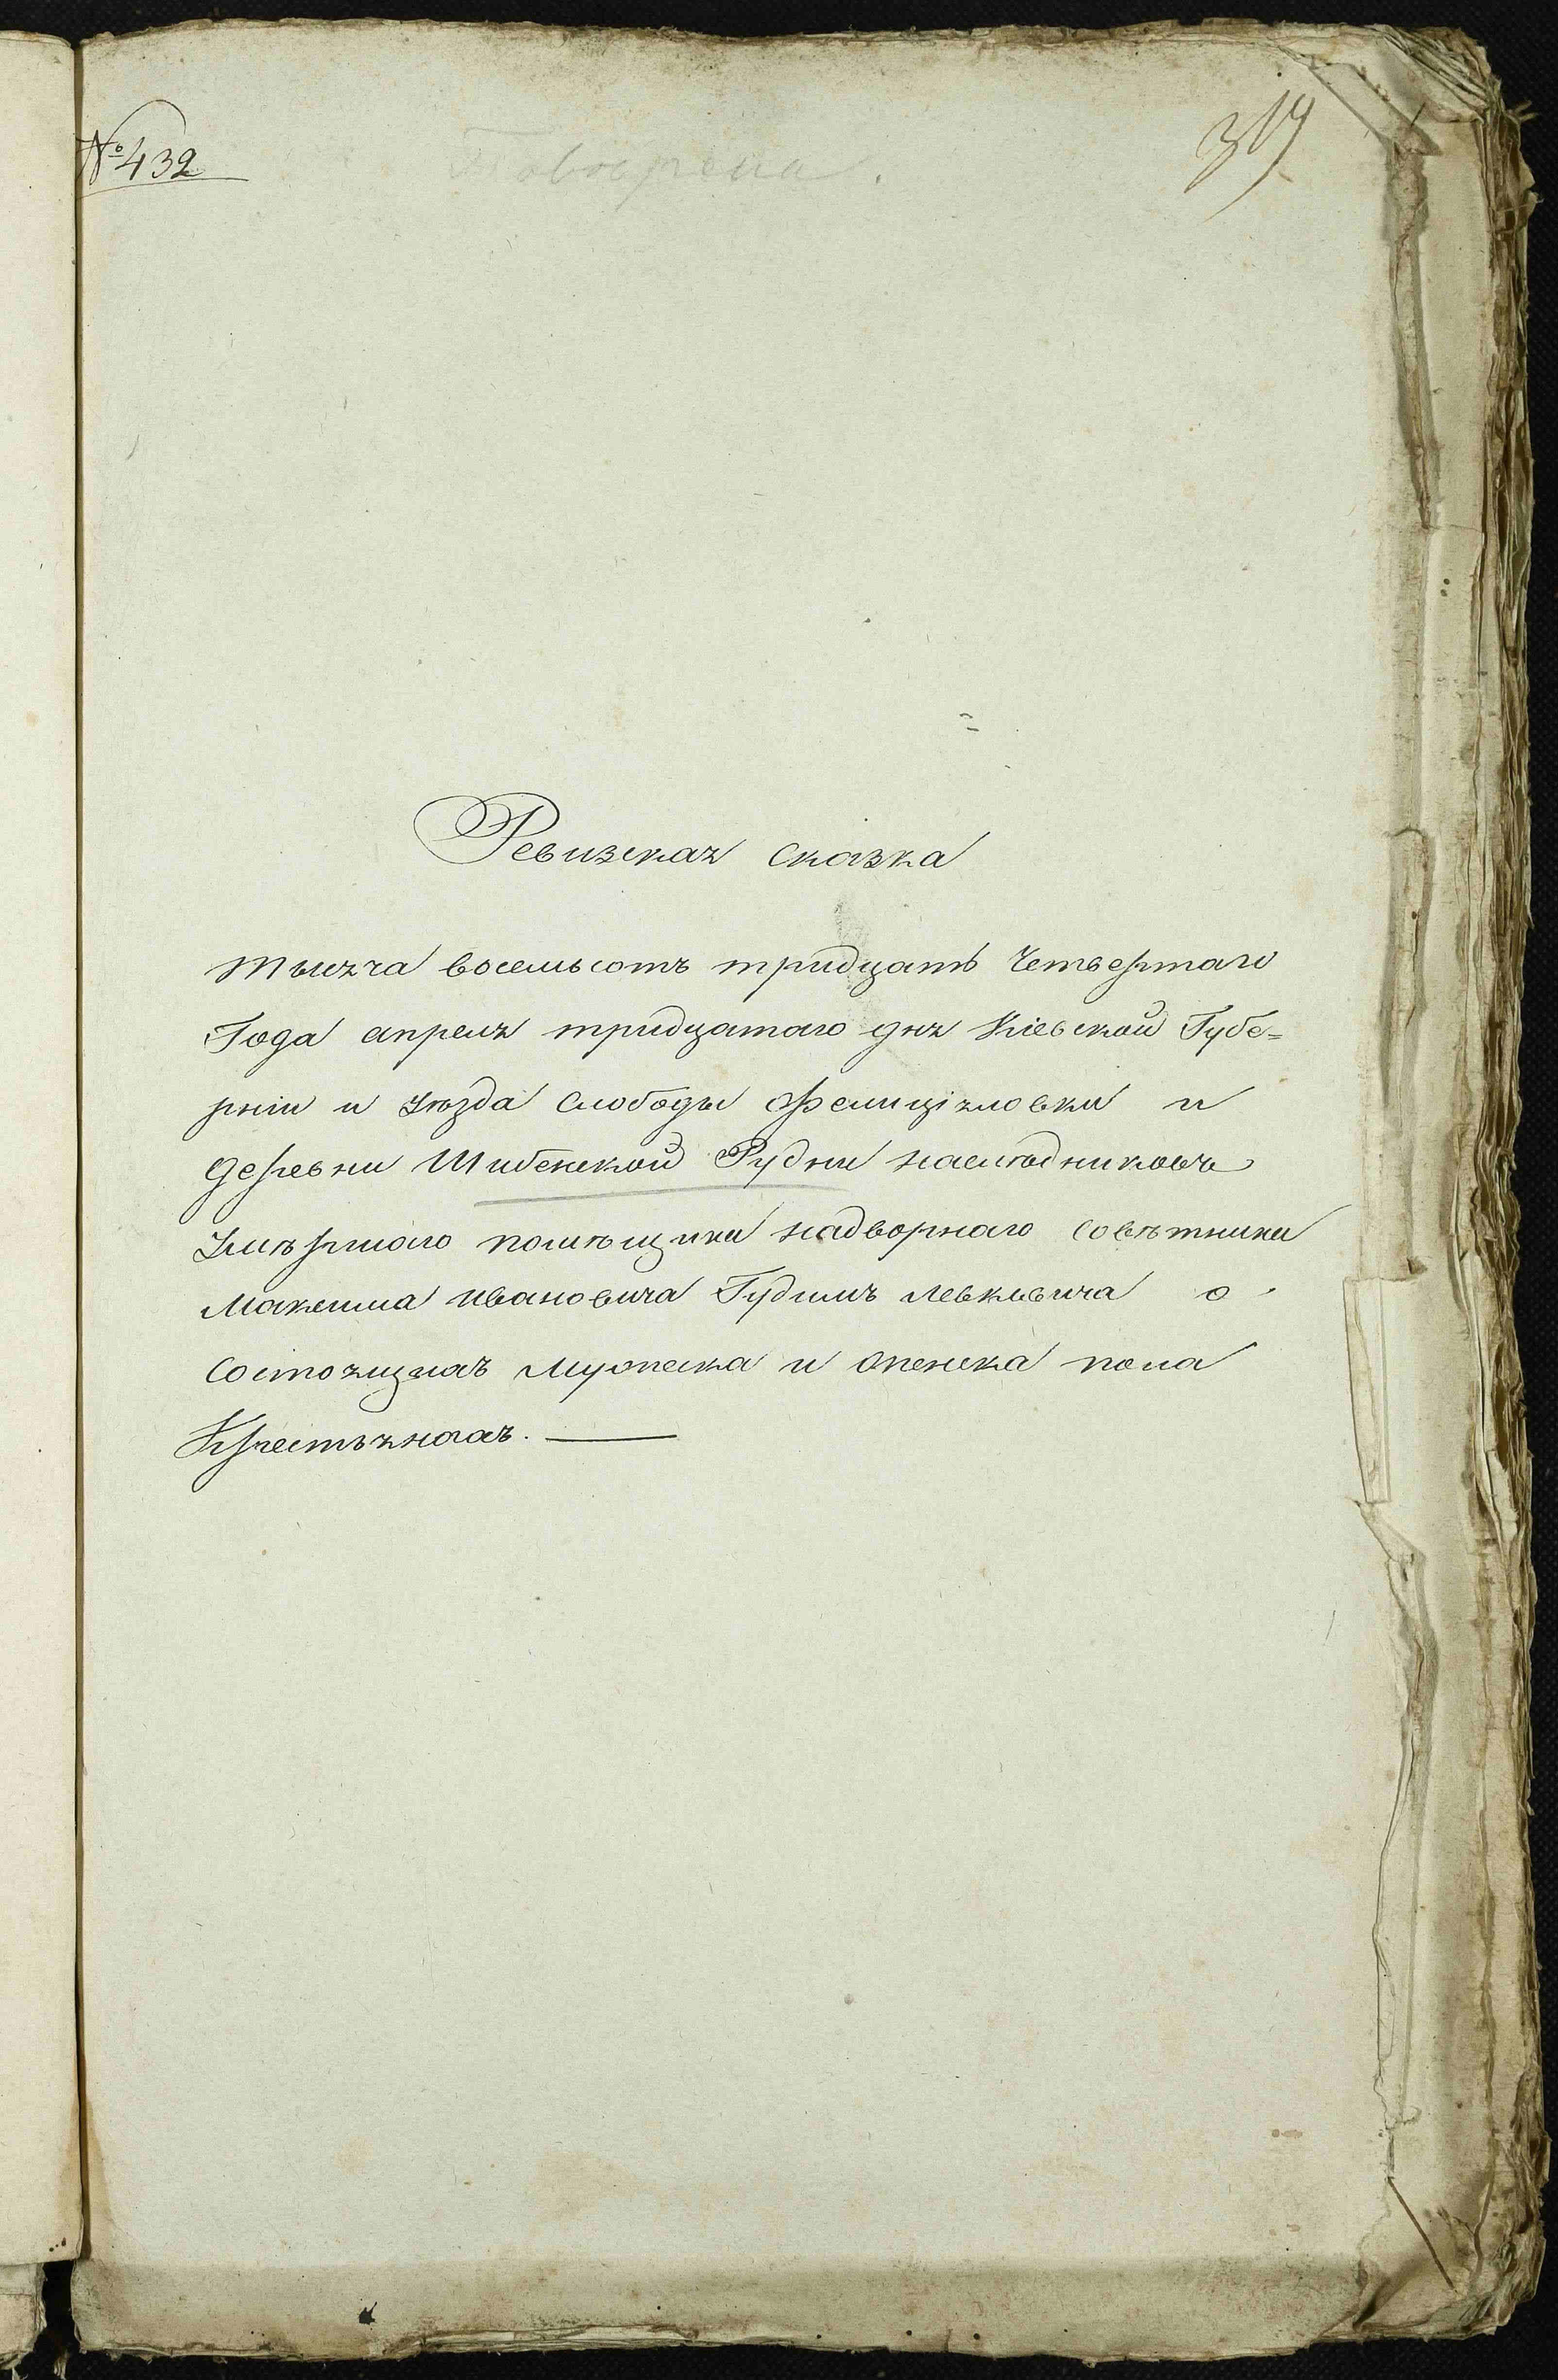 № 432
319
Ревизская сказка
тысяча восемьсотъ тридцать четвертаго
Года апреля тридцатаго дня Кіевской Губе=
рніи и уѣзда слободы Фелиціяловки и
деревни Шибенской Рудни наслѣдниковъ
умѣршаго помѣщика надворнаго совѣтника
Максима ивановича Гудимъ левковича о
состоящихъ мужеска и женска пола
Крестьянахъ.